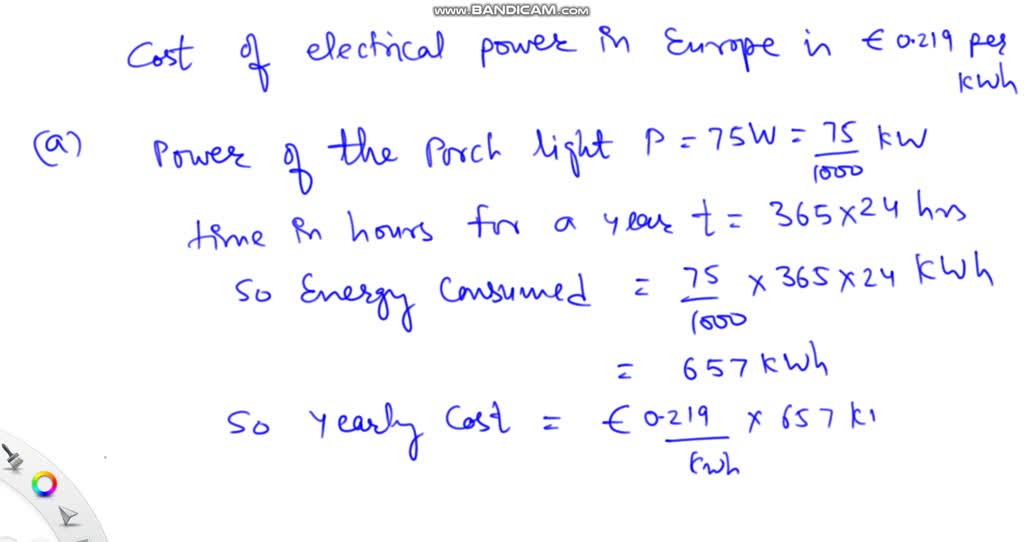 www.BANDICAM.com
Cost of electrical power in Europe in € 0.219 per kWh
(a) Power of the Porch light P = 75W = 75/1000 kW
time in hours for a year t = 365×24 hrs
So Energy Consumed = 75/1000 × 365×24 kWh
= 657 kWh
So Yearly Cost = € 0.219/kwh × 657 k